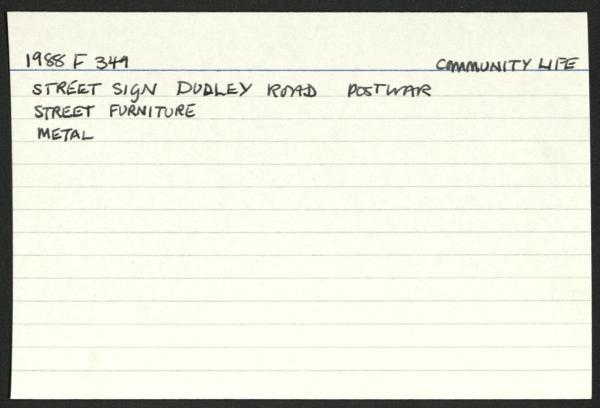 1988 F 349 COMMUNITY LIFE
STREET SIGN DUDLEY ROAD POSTWAR
STREET FURNITURE
METAL